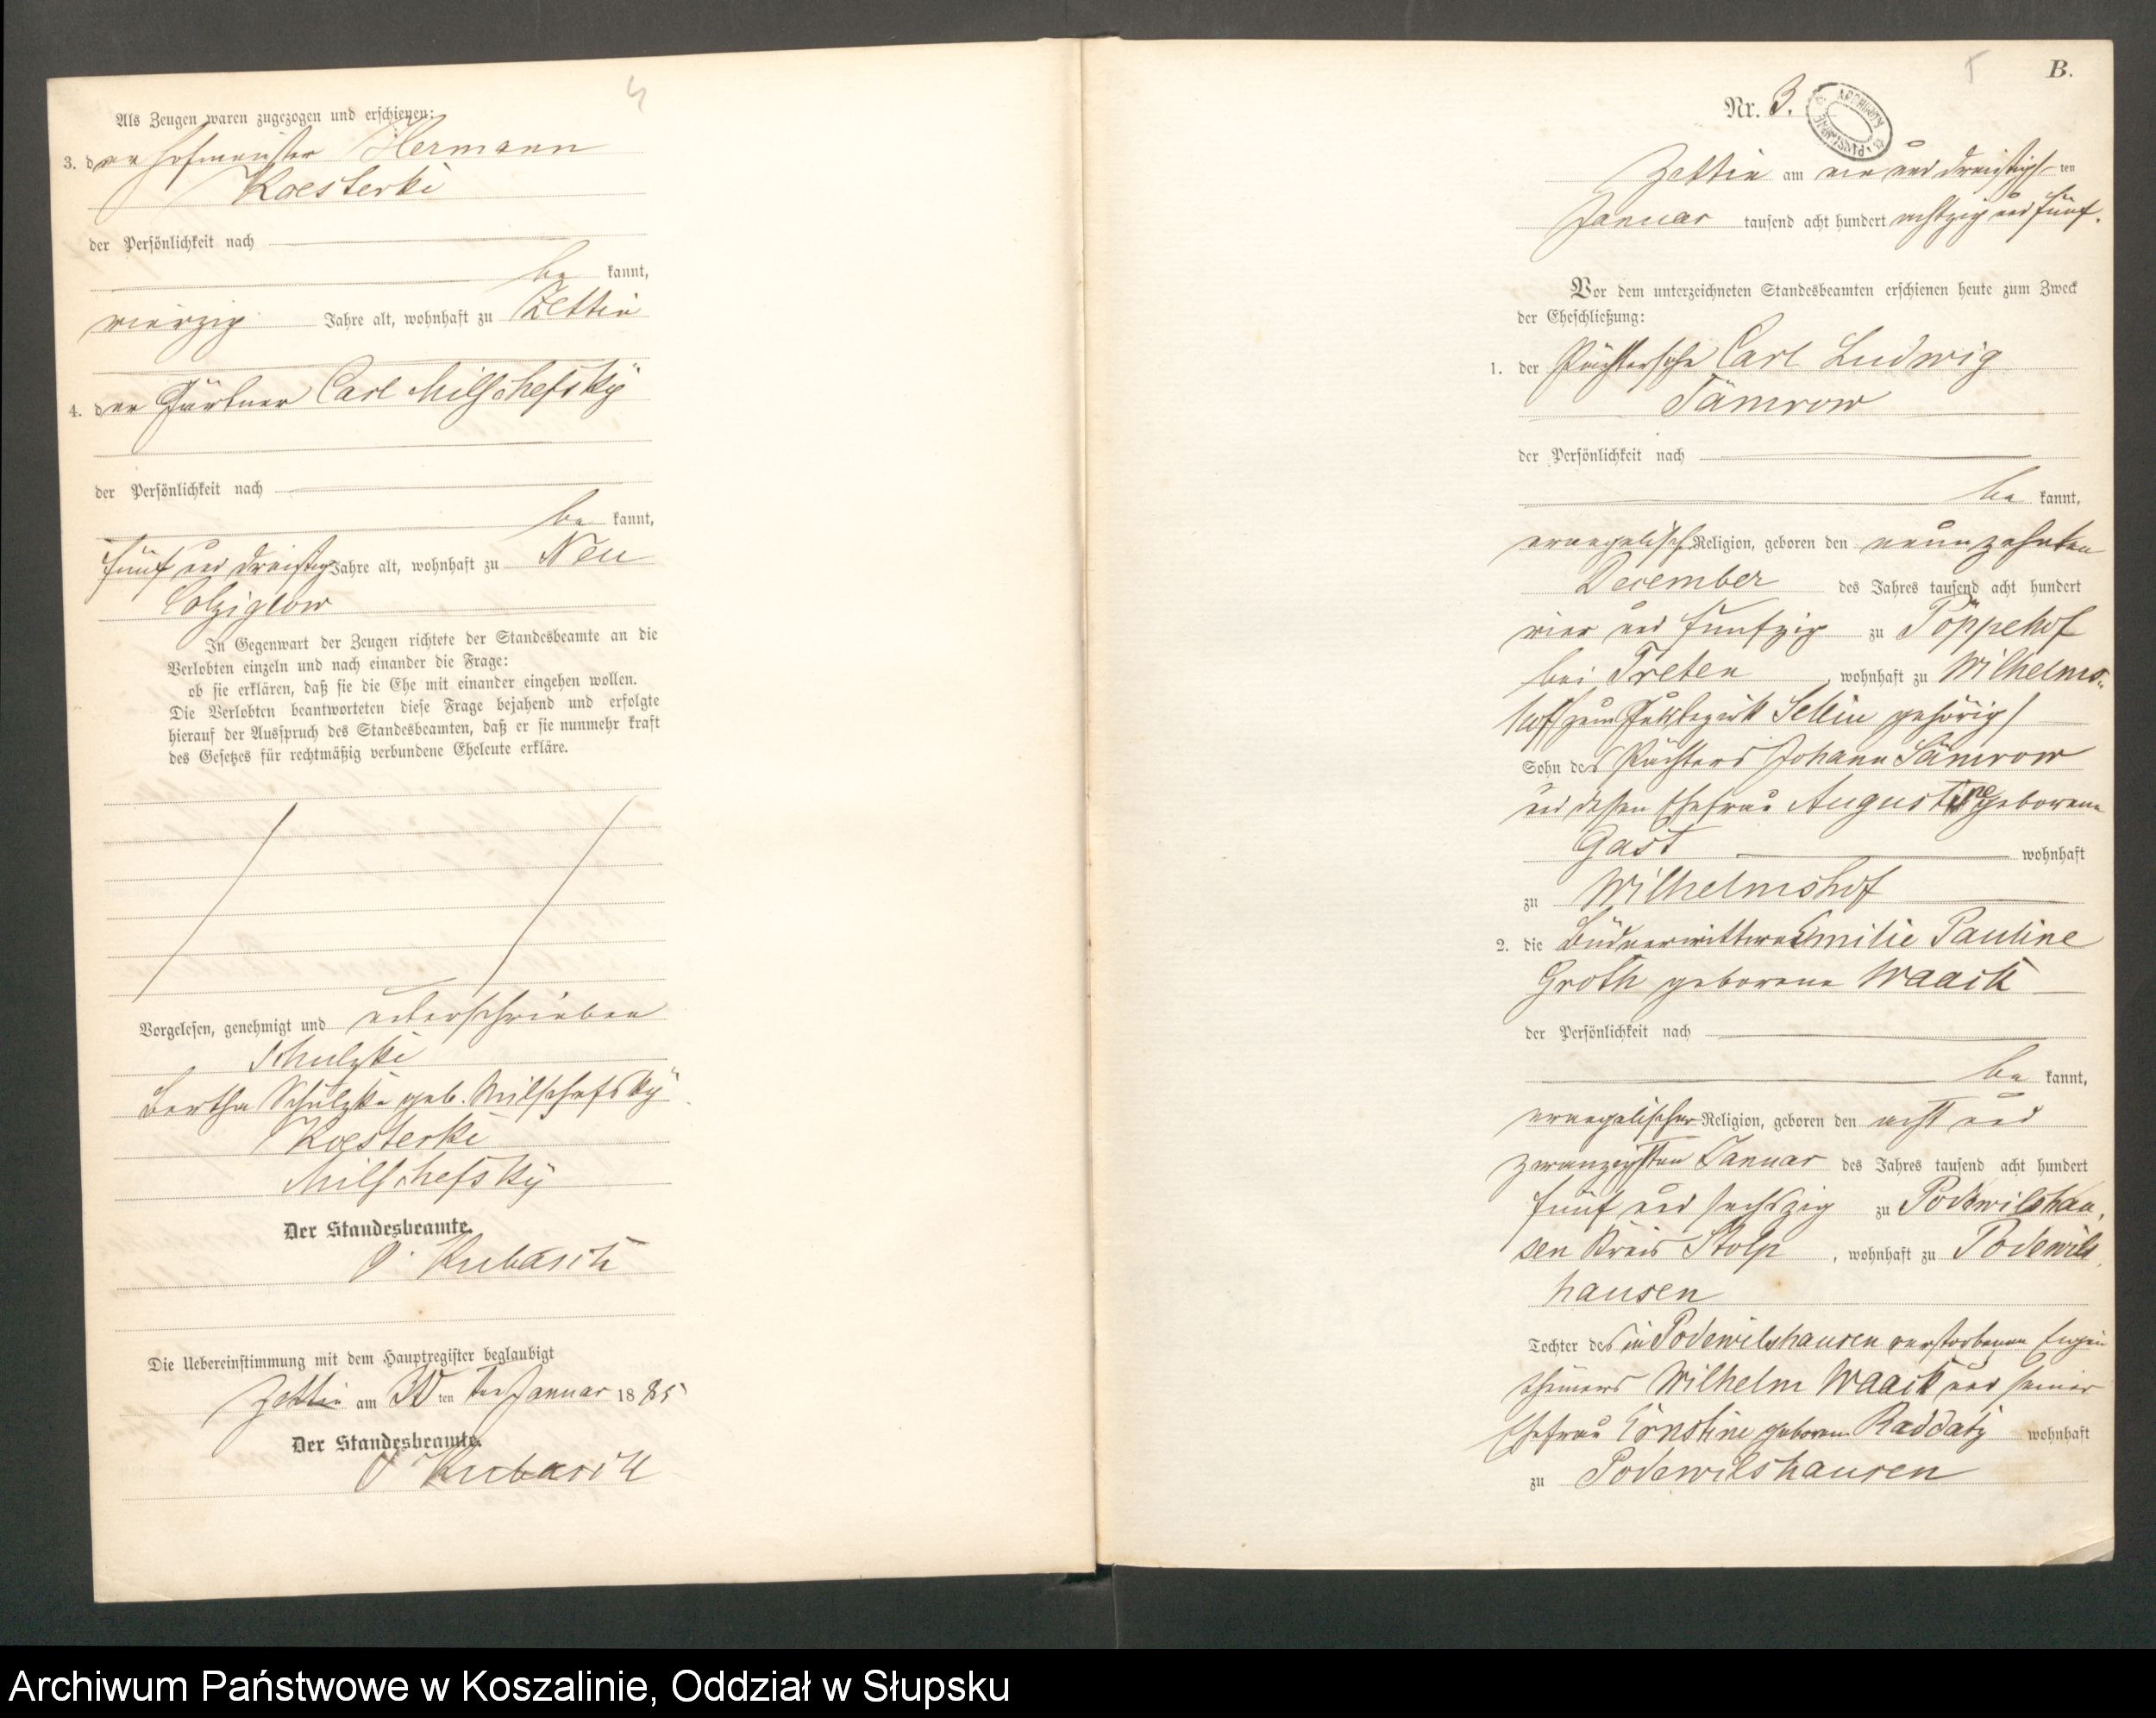 4
Als Zeugen waren zugezogen und erschienen:
3. der Hofmeister Hermann
Koesterke
der Persönlichkeit nach
be kannt,
vierzig Jahre alt, wohnhaft zu Zettin
4. der Gärtner Carl Milschefsky
der Persönlichkeit nach
be kannt,
fünf und dreißig Jahre alt, wohnhaft zu Neu
Colziglow
In Gegenwart der Zeugen richtete der Standesbeamte an die
Verlobten einzeln und nach einander die Frage:
ob sie erklären, daß sie die Ehe mit einander eingehen wollen.
Die Verlobten beantworteten diese Frage bejahend und erfolgte
hierauf der Ausspruch des Standesbeamten, daß er sie nunmehr kraft
des Gesetzes für rechtmäßig verbundene Eheleute erkläre.
Vorgelesen, genehmigt und unterschrieben
Schulzke
Bertha Schulzke geb. Milschefsky
Koesterke
Milschefsky
Der Standesbeamte.
Kubasch
Die Uebereinstimmung mit dem Hauptregister beglaubigt
Zettin am ten Januar 1885
Der Standesbeamte.
Kubasch
5
B.
Nr. 3.
Zettin am ein und dreißigsten
Januar tausend acht hundert achtzig und fünf.
Vor dem unterzeichneten Standesbeamten erschienen heute zum Zweck
der Eheschließung:
1. der Pächtersohn Carl Ludwig
Tämrow
der Persönlichkeit nach
be kannt,
evangelisch Religion, geboren den neunzehnten
December des Jahres tausend acht hundert
vier und fünfzig zu Pöppelhof
bei Treten, wohnhaft zu Wilhelms-
hof (zum Gutsbezirk Sellin gehörig)
Sohn des Pächters Johann Tämrow
und dessen Ehefrau Augustine geborene
Gast wohnhaft
zu Wilhelmshof
2. die Büdnerwittwe Emilie Pauline
Groth geborene Waack
der Persönlichkeit nach
be kannt,
evangelischer Religion, geboren den acht und
zwanzigsten Januar des Jahres tausend acht hundert
fünf und sechszig zu Podewilshau-
sen Kreis Stolp, wohnhaft zu Podewils-
hausen
Tochter des in Podewilshausen verstorbenen Eigen-
thümers Wilhelm Waack und seiner
Ehefrau Ernstine geborene Raddatz wohnhaft
zu Podewilshausen
Archiwum Państwowe w Koszalinie, Oddział w Słupsku